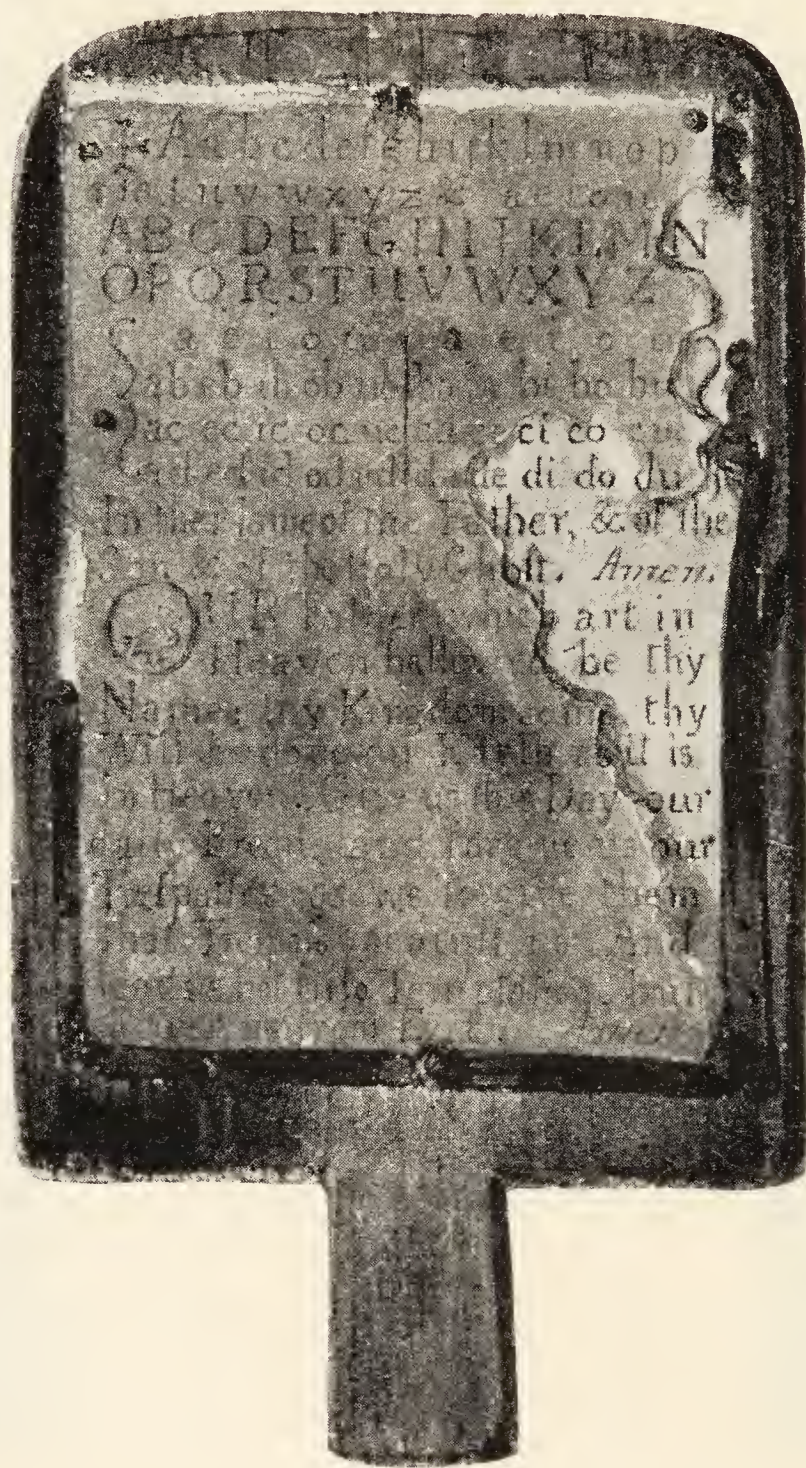 ✠ A a b c d e f g h i j k l m n o p
q r ſ s t u v w x y z & a e i o u
A B C D E F G H I J K L M N
O P Q R S T U V W X Y Z
a e i o u a e i o u
ab eb ib ob ub ba be bi bo bu
ac ec ic oc uc ca ce ci co cu
ad ed id od ud da de di do du
In the Name of the Father, & of the
Holy Ghoſt. Amen.
OUR Father which art in
Heaven hallowed be thy
Name; thy Kingdom come, thy
Will be done on Earth as it is
in Heaven. Give us this Day our
daily Bread; and forgive us our
Treſpaſſes as we forgive them
that Treſpaſs againſt us: And
lead us not into Temptation, but
Amen.